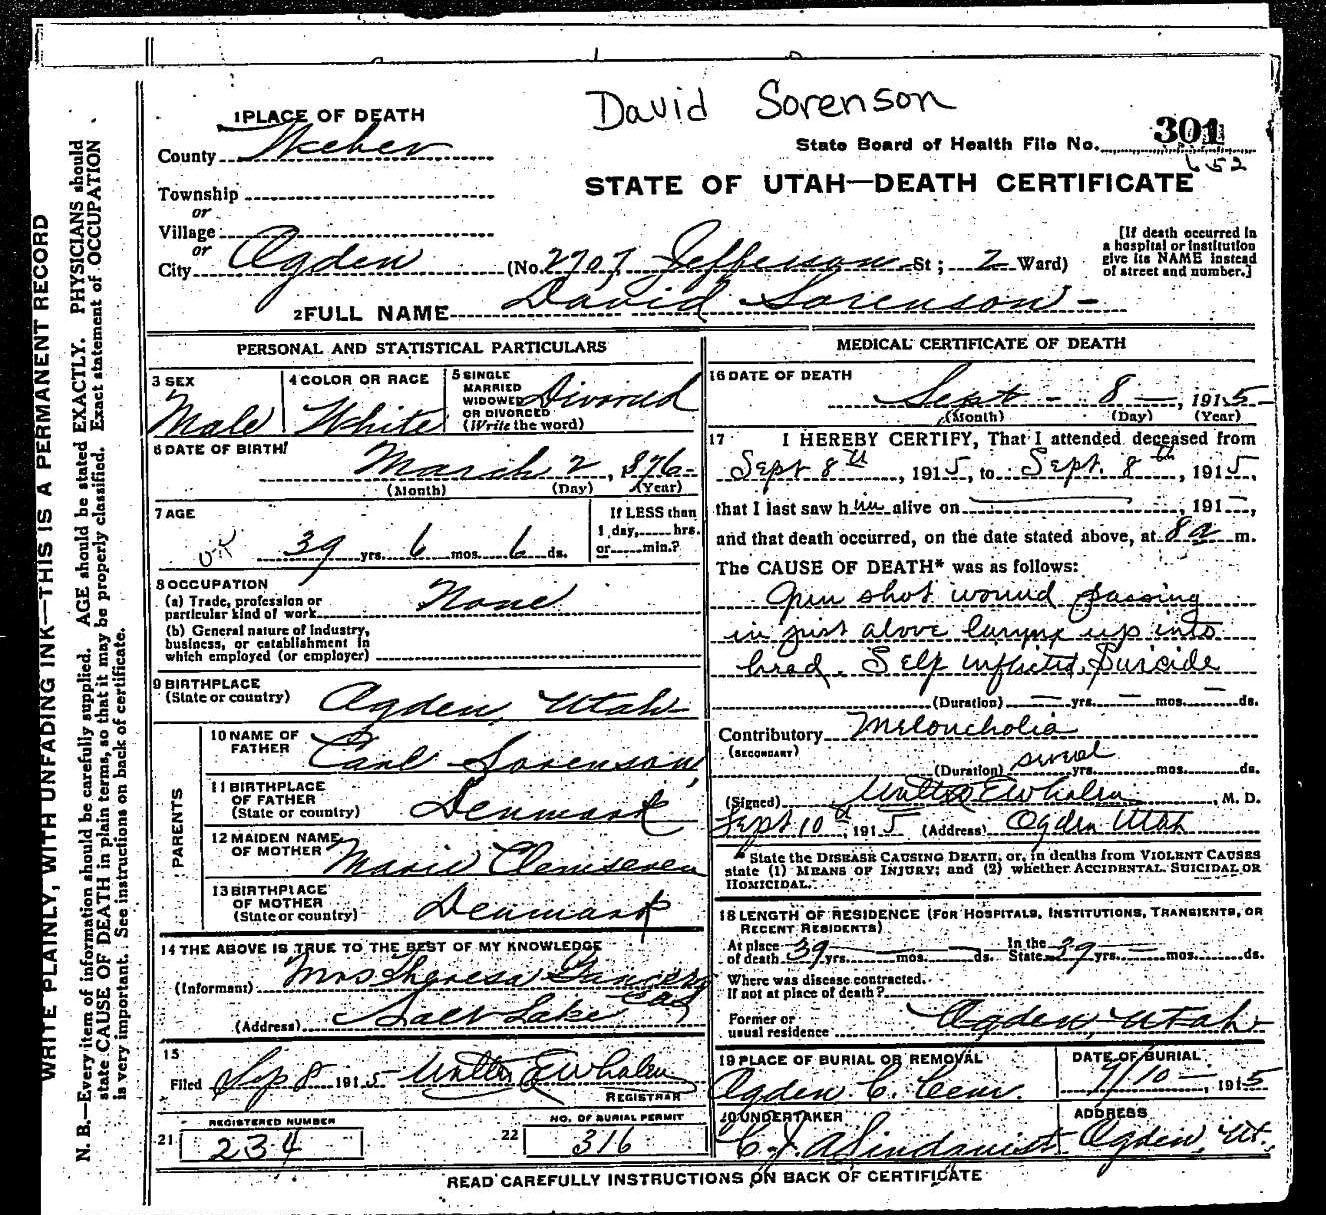 David Sorenson
1 PLACE OF DEATH
County Weber
State Board of Health File No. 301
652
STATE OF UTAH—DEATH CERTIFICATE
Township
or
Village
or
City Ogden (No. 2707 Jefferson St; 2 Ward)
[If death occurred in a hospital or institution give its NAME instead of street and number.]
2 FULL NAME David Sorenson
PERSONAL AND STATISTICAL PARTICULARS
3 SEX
Male
4 COLOR OR RACE
White
5 SINGLE
MARRIED
WIDOWED
OR DIVORCED
(Write the word)
Divorced
6 DATE OF BIRTH
March 2, 1876
(Month) (Day) (Year)
7 AGE
39 yrs. 6 mos. 6 ds.
If LESS than
1 day, hrs.
or min.?
8 OCCUPATION
(a) Trade, profession or
particular kind of work None
(b) General nature of industry,
business, or establishment in
which employed (or employer)
9 BIRTHPLACE
(State or country) Ogden, Utah
PARENTS
10 NAME OF
FATHER Carl Sorenson
11 BIRTHPLACE
OF FATHER
(State or country) Denmark
12 MAIDEN NAME
OF MOTHER Marie
13 BIRTHPLACE
OF MOTHER
(State or country) Denmark
14 THE ABOVE IS TRUE TO THE BEST OF MY KNOWLEDGE
(Informant) Mrs Theresa
(Address) Salt Lake
15
Filed Sep 8 1915 Walter E Whalen
REGISTRAR
REGISTERED NUMBER
21 234
NO. OF BURIAL PERMIT
22 316
MEDICAL CERTIFICATE OF DEATH
16 DATE OF DEATH
Sept - 8 -, 1915
(Month) (Day) (Year)
17 I HEREBY CERTIFY, That I attended deceased from
Sept 8th, 1915, to Sept. 8th, 1915,
that I last saw him alive on , 191 ,
and that death occurred, on the date stated above, at 8 a m.
The CAUSE OF DEATH* was as follows:
Gun shot wound passing
in just above larynx up into
head. Self inflicted, Suicide
(Duration) yrs. mos. ds.
Contributory Meloncholia
(SECONDARY)
(Duration) several yrs. mos. ds.
(Signed) Walter E Whalen, M. D.
Sept 10th, 1915 (Address) Ogden Utah
* State the DISEASE CAUSING DEATH, or, in deaths from VIOLENT CAUSES
state (1) MEANS OF INJURY; and (2) whether ACCIDENTAL, SUICIDAL OR
HOMICIDAL.
18 LENGTH OF RESIDENCE (FOR HOSPITALS, INSTITUTIONS, TRANSIENTS, OR
RECENT RESIDENTS)
At place of death 39 yrs. mos. ds. In the State 39 yrs. mos. ds.
Where was disease contracted,
If not at place of death?
Former or
usual residence Ogden, Utah
19 PLACE OF BURIAL OR REMOVAL
Ogden C. Cem.
DATE OF BURIAL
9/10 -, 1915
20 UNDERTAKER
ADDRESS
Ogden, Ut.
READ CAREFULLY INSTRUCTIONS ON BACK OF CERTIFICATE
WRITE PLAINLY, WITH UNFADING INK—THIS IS A PERMANENT RECORD
N. B.—Every item of information should be carefully supplied. AGE should be stated EXACTLY. PHYSICIANS should
state CAUSE OF DEATH in plain terms, so that it may be properly classified. Exact statement of OCCUPATION
is very important. See instructions on back of certificate.